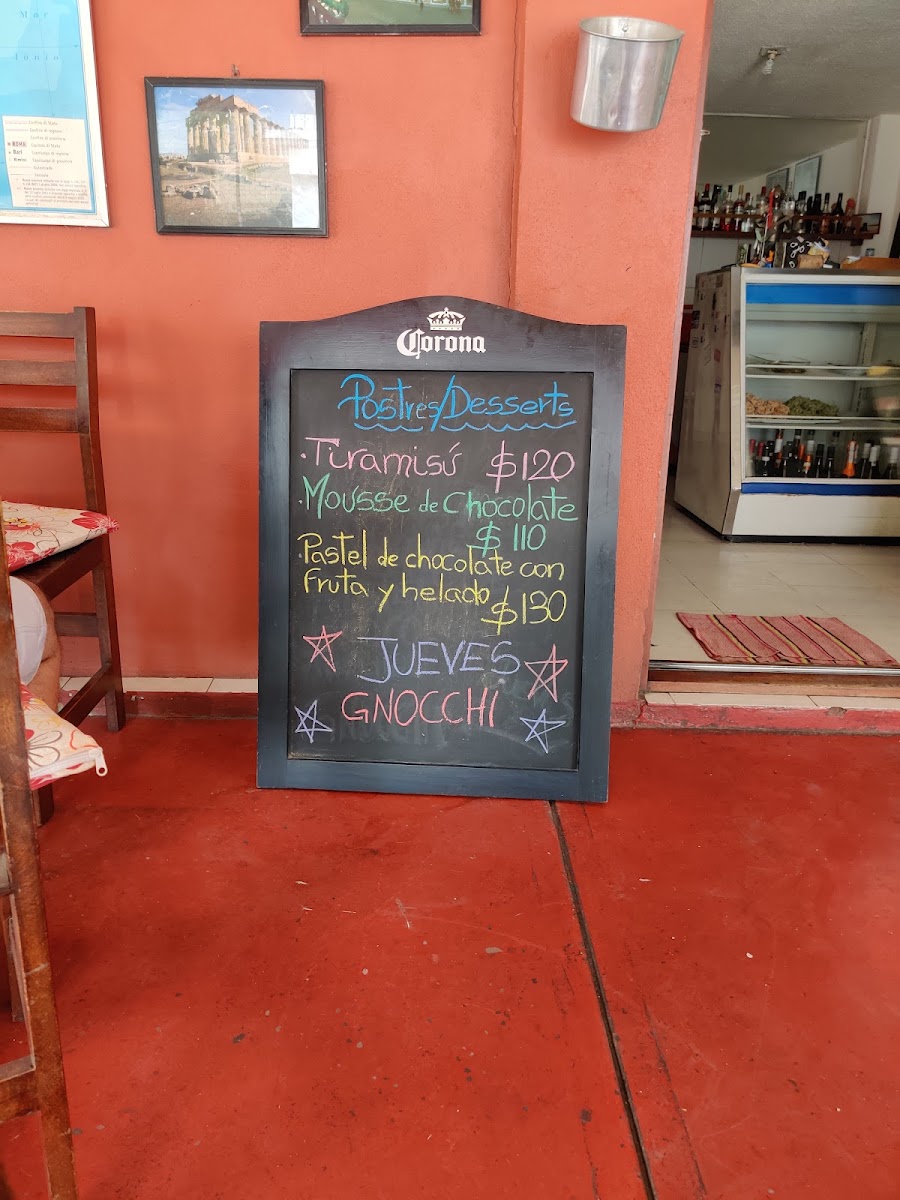 Mar
Ionio
ROMA
Bari
Corona
Postres/Desserts
·Tiramisú $120
·Mousse de Chocolate
$110
·Pastel de chocolate con
fruta y helado $130
JUEVES
GNOCCHI